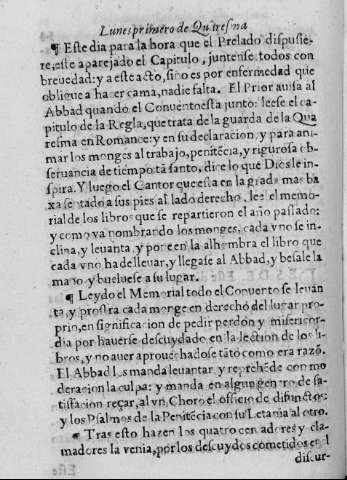 Lunes primero de Quaresma
¶ Este dia para la hora que el Prelado dispusie-
re, este aparejado el Capitulo, juntense todos con
breuedad: y a este acto, sino es por enfermedad que
oblique a hazer cama, nadie falta. El Prior auisa al
Abbad quando el Conuento esta junto: leese el ca-
pitulo de la Regla, que trata de la guarda de la Qua
resma en Romance: y en su declaracion, y para ani-
mar los monges al trabajo, penitēcia, y rigurosa ob-
seruancia de tiempo tā santo, dize lo que Dios le in-
spira. Y luego el Cantor que esta en la grada mas ba
xa sentado a sus pies al lado derecho, lee el memo-
rial de los libros que se repartieron el año passado:
y como va nombrando los monges, cada vno se in-
clina, y leuanta, y pone en la alhombra el libro que
cada vno ha de lleuar, y llegase al Abbad, y besale la
mano y bueluese a su lugar.
¶ Leydo el Memorial todo el Conuento se leuan
ta, y prostra cada monge en derecho del lugar pro-
prio, en significacion de pedir perdon y misericor-
dia por hauerse descuydado en la lection de los li-
bros, y no auer aprouechadose tāto como era razō.
El Abbad les manda leuantar, y reprehēde con mo
deracion la culpa: y manda en algun genero de sa-
tisfacion reçar, al vn Choro el officio de difunctos:
y los Psalmos de la Penitēcia con su Letania al otro.
¶ Tras esto hazen los quatro cenadores y cla-
madores la venia, por los descuydos cometidos en el
discur-